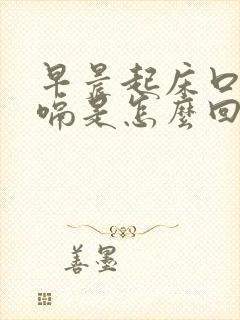 早晨起床口
喎是怎麼回
善墨